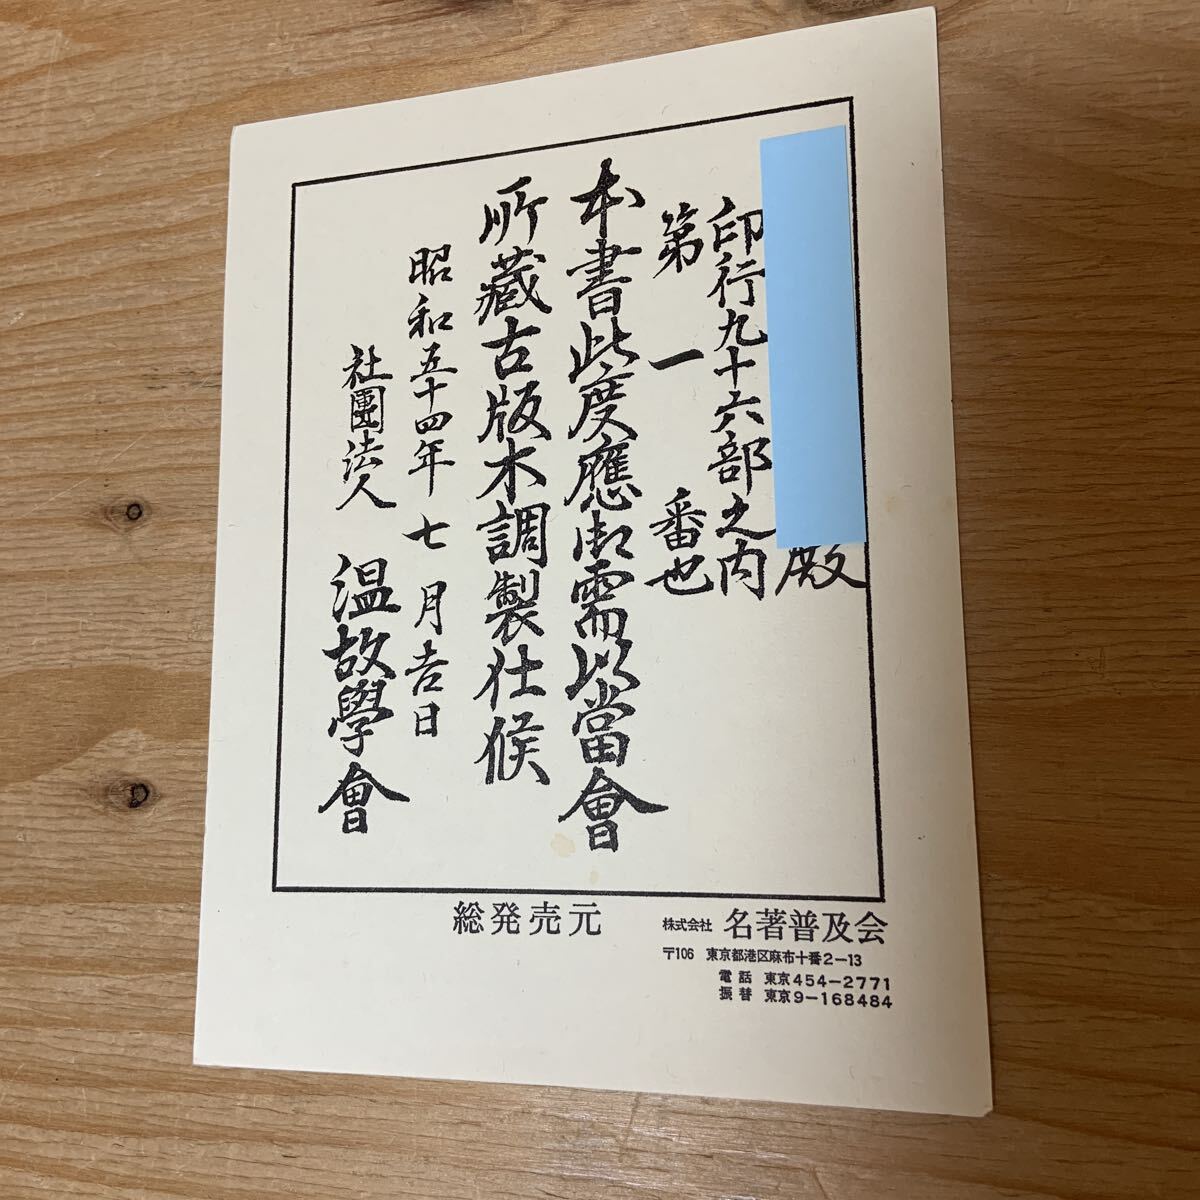 殿
印行九十六部之内
第一番也
本書此度應御需以當會
所藏古版木調製仕候
昭和五十四年七月吉日
社團法人 温故學會
総発売元
株式会社 名著普及会
〒106 東京都港区麻布十番2-13
電話 東京454-2771
振替 東京9-168484